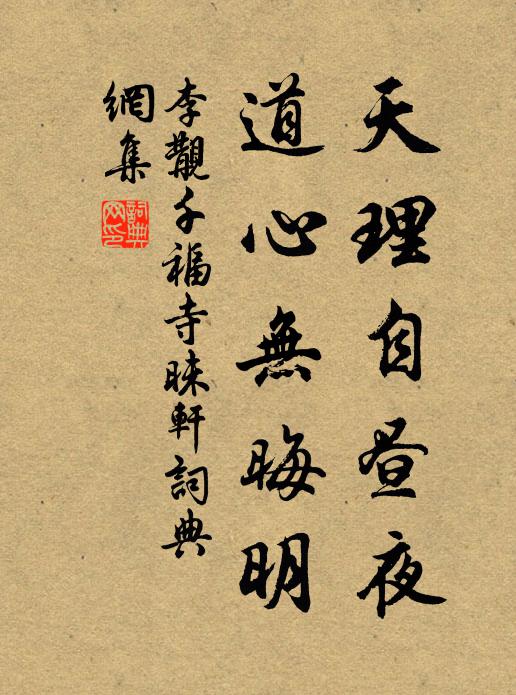 天理自昼夜
道心無晦明
李觀千福寺昧軒詞典
網集
詞典網印